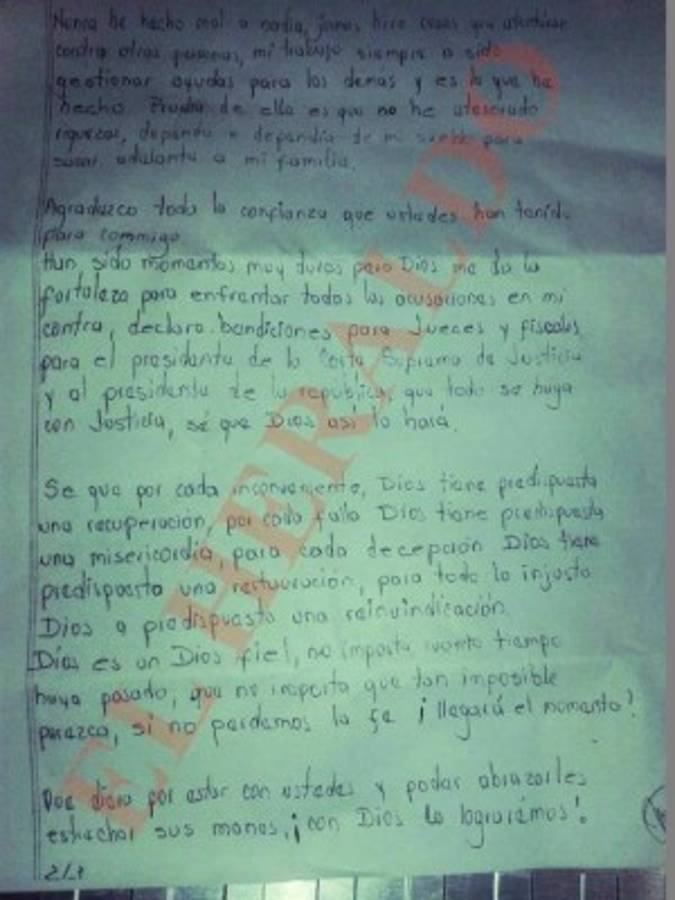 Nunca he hecho mal a nadia, jamas hice cosas que atentaran
contra otras personas, mi trabajo siempre a sido
gestionar ayudas para los demas y es lo que he
hecho. Prueba de ello es que no he atesorado
riquezas, dependo o dependia de mi sueldo para
sacar adelante a mi familia.
Agradezco toda la confianza que ustedes han tenido
para commigo
Han sido momentos muy duros pero Dios me da la
fortaleza para enfrentar todas las acusaciones en mi
contra, declaro bendiciones para Jueces y fiscales
para el presidente de la Corte Suprema de Justicia
y al presidente de la republica, que todo se haga
con Justicia, sé que Dios así lo hará.
Se que por cada inconveniente, Dios tiene predispuesta
una recuperación, por cada falla Dios tiene predispuesta
una misericordia, para cada decepción Dios tiene
predispuesto una restauración, para todo lo injusto
Dios a predispuesto una reinvindicación.
Dios es un Dios fiel, no importa cuanto tiempo
haya pasado, que no importa que tan imposible
parezca, si no perdemos la fe ¡llegará el momento!
por estar con ustedes y poder abrazarles
estrechar sus manos, ¡con Dios lo lograremos!
2/2
EL HERALDO